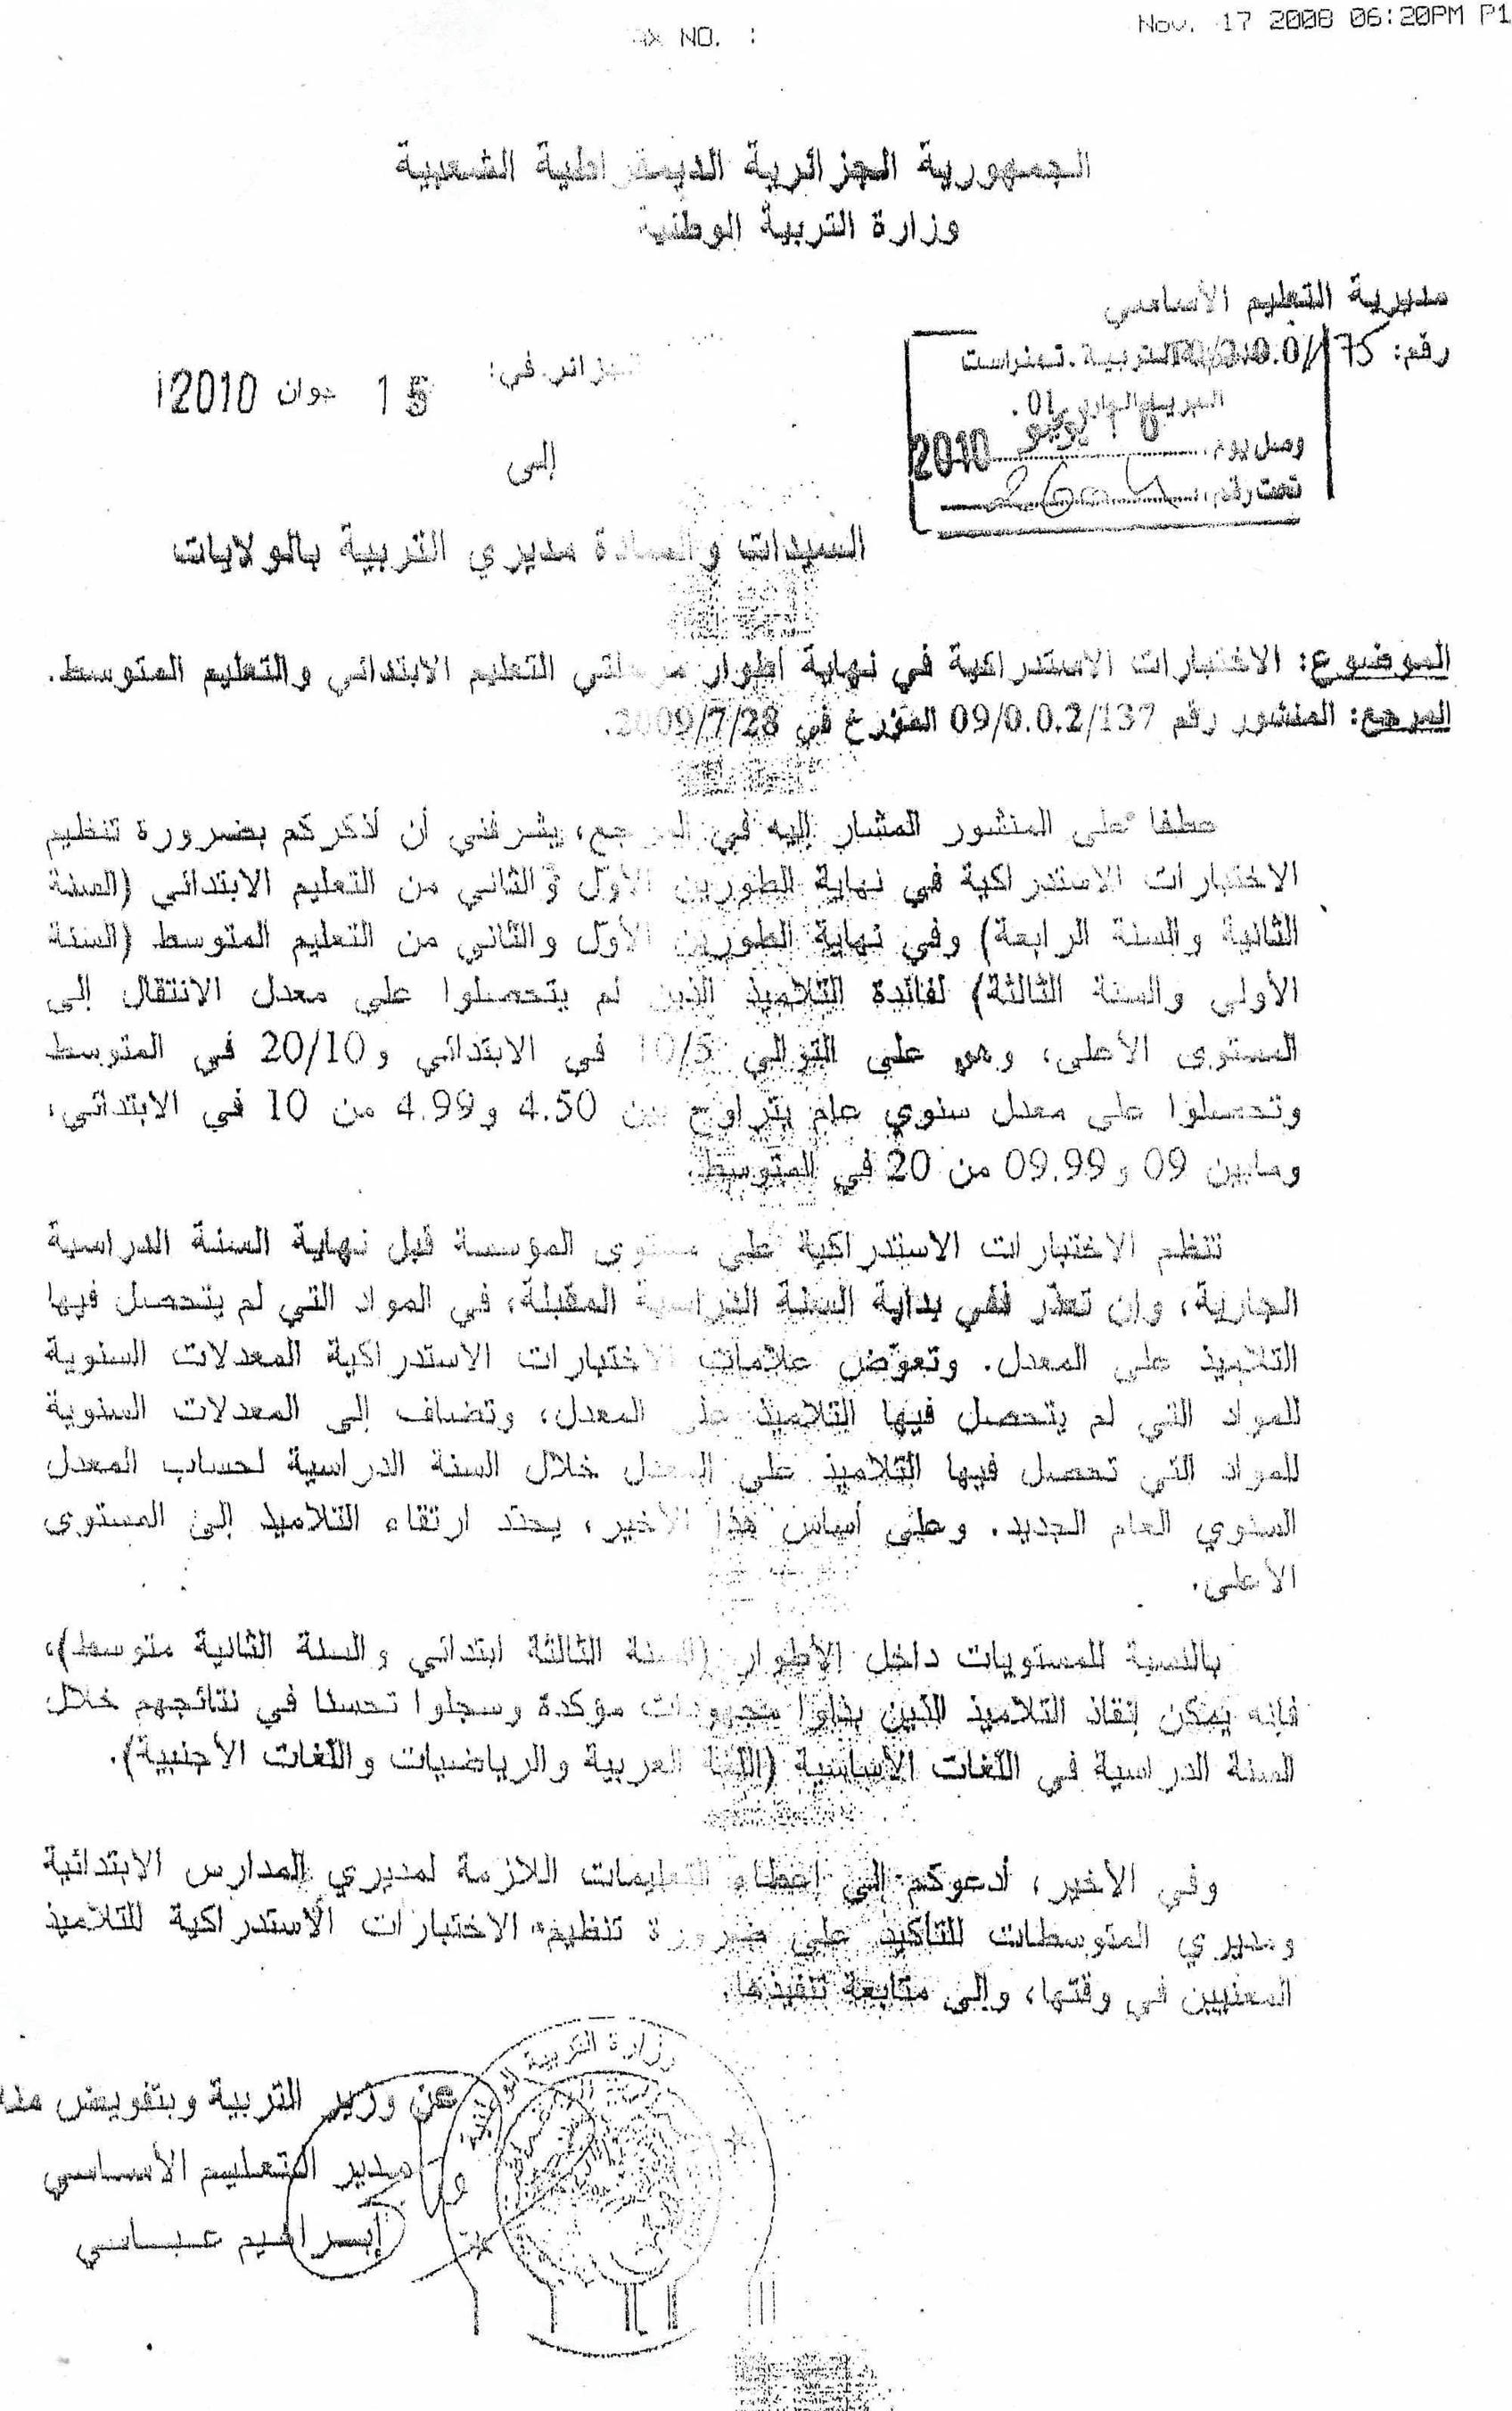 Nov. 17 2008 06:20PM P1
NO. :
الجمهورية الجزائرية الديمقراطية الشعبية
وزارة التربية الوطنية
مديرية التعليم الأساسي
رقم: 175/
التربية . تمنراست
البريد الوارد 01.
وصل يوم: 2010
تحت رقم:
الجزائر في: 15 جوان 2010
إلى
السيدات والسادة مديري التربية بالولايات
الموضوع: الاختبارات الاستدراكية في نهاية أطوار مرحلتي التعليم الابتدائي والتعليم المتوسط.
المرجع: المنشور رقم 09/0.0.2/137 المؤرخ في 2009/7/28.
عطفا على المنشور المشار إليه في المرجع، يشرفني أن أذكركم بضرورة تنظيم
الاختبارات الاستدراكية في نهاية الطورين الأوّل والثاني من التعليم الابتدائي (السنة
الثانية والسنة الرابعة) وفي نهاية الطورين الأوّل والثاني من التعليم المتوسط (السنة
الأولى والسنة الثالثة) لفائدة التلاميذ الذين لم يتحصلوا على معدل الانتقال إلى
المستوى الأعلى، وهو على التوالي 10/5 في الابتدائي و20/10 في المتوسط
وتحصلوا على معدل سنوي عام يتراوح بين 4.50 و4.99 من 10 في الابتدائي،
ومابين 09 و09.99 من 20 في المتوسط.
تنظم الاختبارات الاستدراكية على مستوى المؤسسة قبل نهاية السنة الدراسية
الجارية، وإن تعذّر ففي بداية السنة الدراسية المقبلة، في المواد التي لم يتحصل فيها
التلاميذ على المعدل. وتعوّض علامات الاختبارات الاستدراكية المعدلات السنوية
للمواد التي لم يتحصل فيها التلاميذ على المعدل، وتضاف إلى المعدلات السنوية
للمواد التي تحصل فيها التلاميذ على المعدل خلال السنة الدراسية لحساب المعدل
السنوي العام الجديد. وعلى أساس هذا الأخير، يحدد ارتقاء التلاميذ إلى المستوى
الأعلى.
بالنسبة للمستويات داخل الأطوار (السنة الثالثة ابتدائي والسنة الثانية متوسط)،
فإنه يمكن إنقاذ التلاميذ الذين بذلوا مجهودات مؤكدة وسجلوا تحسنا في نتائجهم خلال
السنة الدراسية في اللغات الأساسية (اللغة العربية والرياضيات واللغات الأجنبية).
وفي الأخير، أدعوكم إلى إعطاء التعليمات اللازمة لمديري المدارس الابتدائية
ومديري المتوسطات للتأكيد على ضرورة تنظيم الاختبارات الاستدراكية للتلاميذ
المعنيين في وقتها، وإلى متابعة تنفيذها.
وزارة التربية الوطنية
عن وزير التربية وبتفويض منه
مدير التعليم الأساسي
إبراهيم عباسي